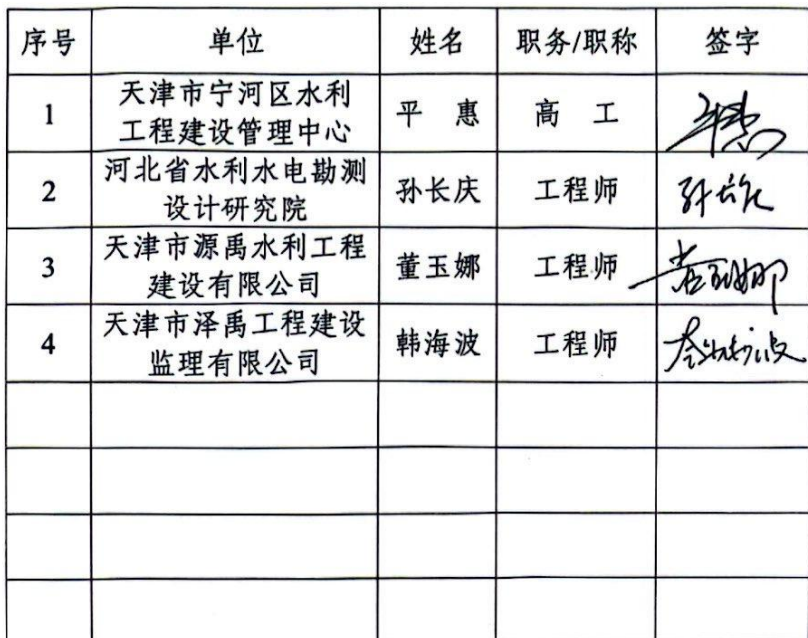 序号 单位 姓名 职务/职称 签字
1 天津市宁河区水利
工程建设管理中心 平 惠 高 工 平惠
2 河北省水利水电勘测
设计研究院 孙长庆 工程师 孙长庆
3 天津市源禹水利工程
建设有限公司 董玉娜 工程师 董玉娜
4 天津市泽禹工程建设
监理有限公司 韩海波 工程师